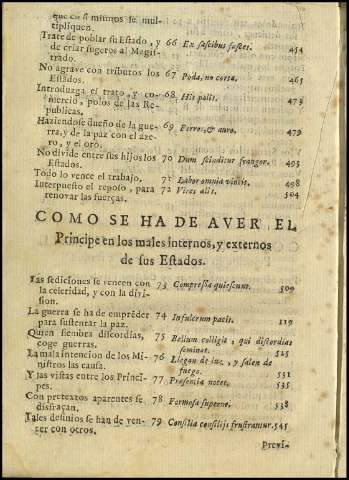 que en sì mismos se mul-
tipliquen.
Trate de poblar su Estado, y 66 Ex fascibus fasces. 454
de criar sugetos al Magis-
trado.
No agrave con tributos los 67 Poda, no corta. 465
Estados.
Introduzga el trato, y co- 68 His polis. 473
mercio, polos de las Re-
publicas,
Haziendose dueño de la gue- 69 Ferro, & auro. 479
rra, y de la paz con el aze-
ro, y el oro.
No divide entre sus hijos los 70 Dum scinditur frangor. 493
Estados.
Todo lo vence el trabajo, 71 Labor omnia vincit. 498
Interpuesto el reposo, para 72 Vires alit. 504
renovar las fuerças.
COMO SE HA DE AVER EL
Principe en los males internos, y externos
de sus Estados.
Las sediciones se vencen con 73 Compressa quiescunt. 509
la celeridad, y con la divi-
sion.
La guerra se ha de emprēder 74 In fulcrum pacis. 519
para sustentar la paz.
Quien siembra discordias, 75 Bellum colligit, qui discordias
coge guerras. seminat. 525
La mala intencion de los Mi- 76 Llegan de luz, y salen de
nistros las causa. fuego. 531
Y las vistas entre los Princi- 77 Præsentia nocet. 535
pes.
Con pretextos aparentes se 78 Formosa superne. 538
disfraçan.
Tales desinios se han de ven- 79 Consilia consilijs frustrantur. 545
cer con otros.
Previ-